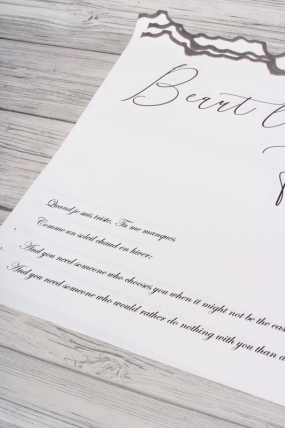 Beart
Quand je suis triste. Tu me manques
Comme un soleil chaud en hiver;
And you need someone who chooses you when it might not be the eas
And you need someone who would rather do nothing with you than a